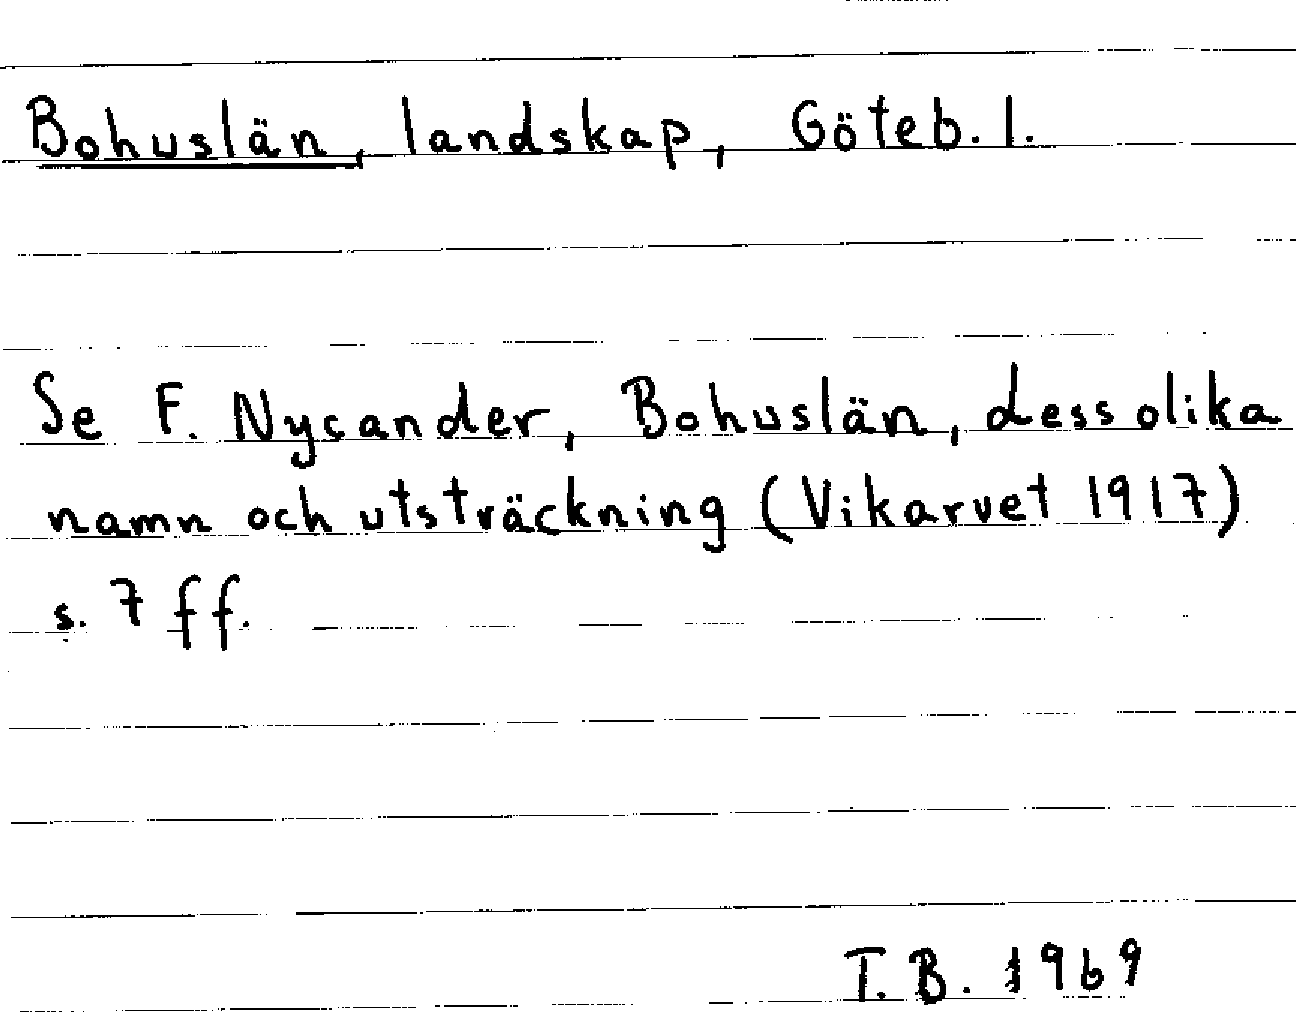 Bohuslän, landskap, Göteb. l.
Se F. Nycander, Bohuslän, dess olika
namn och utsträckning (Vikarvet 1917)
s. 7 ff.
T. B. 1969